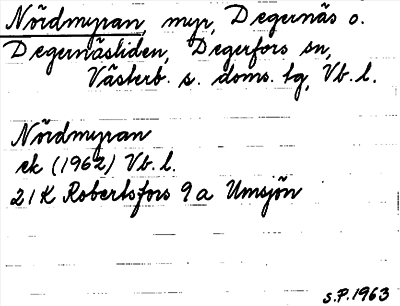 Nördmyran, myr, Degernäs o.
Degernäsliden, Degerfors sn,
Västerb. s. doms. tg, Vb. l.
Nördmyran
ek (1962) Vb. l.
21K Robertsfors 9a Umsjön
S.P. 1963